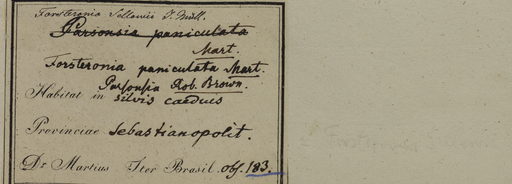 Forsteronia Sellowii J. Müll.
Parsonsia paniculata
Mart.
Forsteronia paniculata Mart.
Parsonsia Rob. Brown.
Habitat in silvis caeduis
Provinciae Sebastianopolit.
Dr. Martius Iter Brasil. obs. 183.